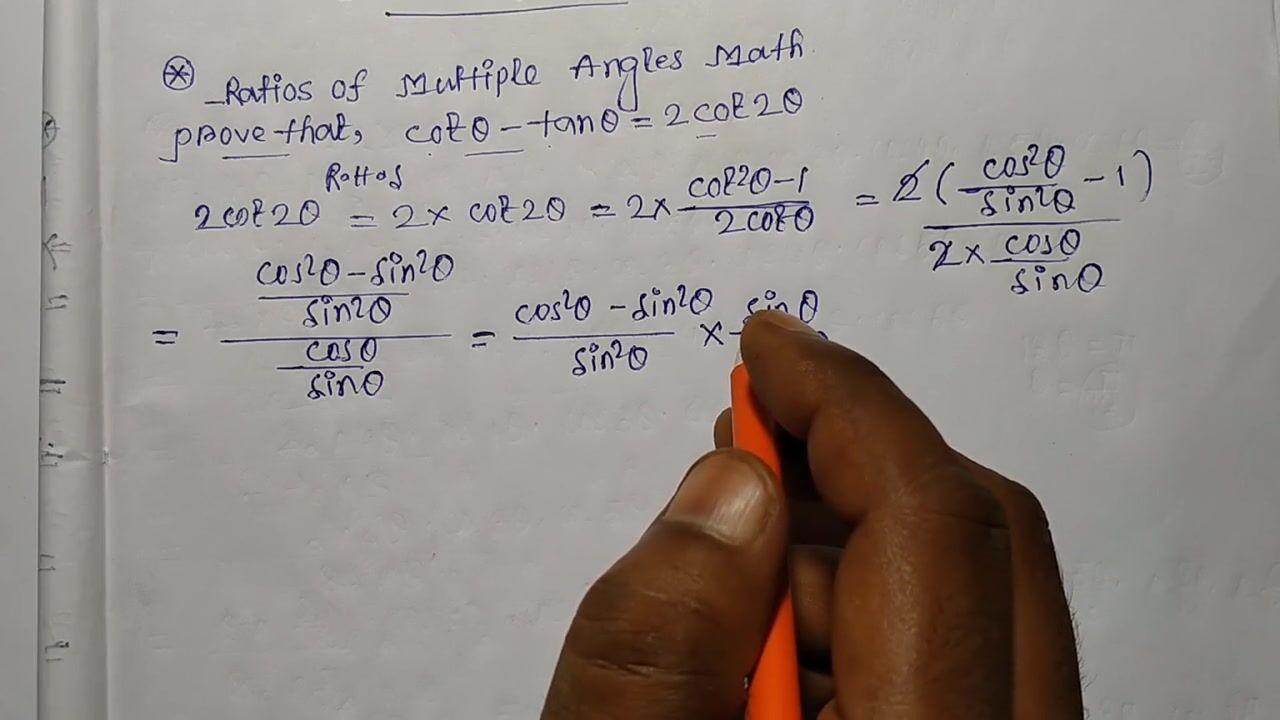 ⊛ Ratios of Multiple Angles Math.
prove that, cotθ − tanθ = 2cot2θ
2cot2θ = 2 × cot2θ = 2 × (cot²θ − 1)/(2cotθ) = 2(cos²θ/sin²θ − 1)/(2 × cosθ/sinθ)
= ((cos²θ − sin²θ)/sin²θ)/(cosθ/sinθ) = (cos²θ − sin²θ)/sin²θ × sinθ